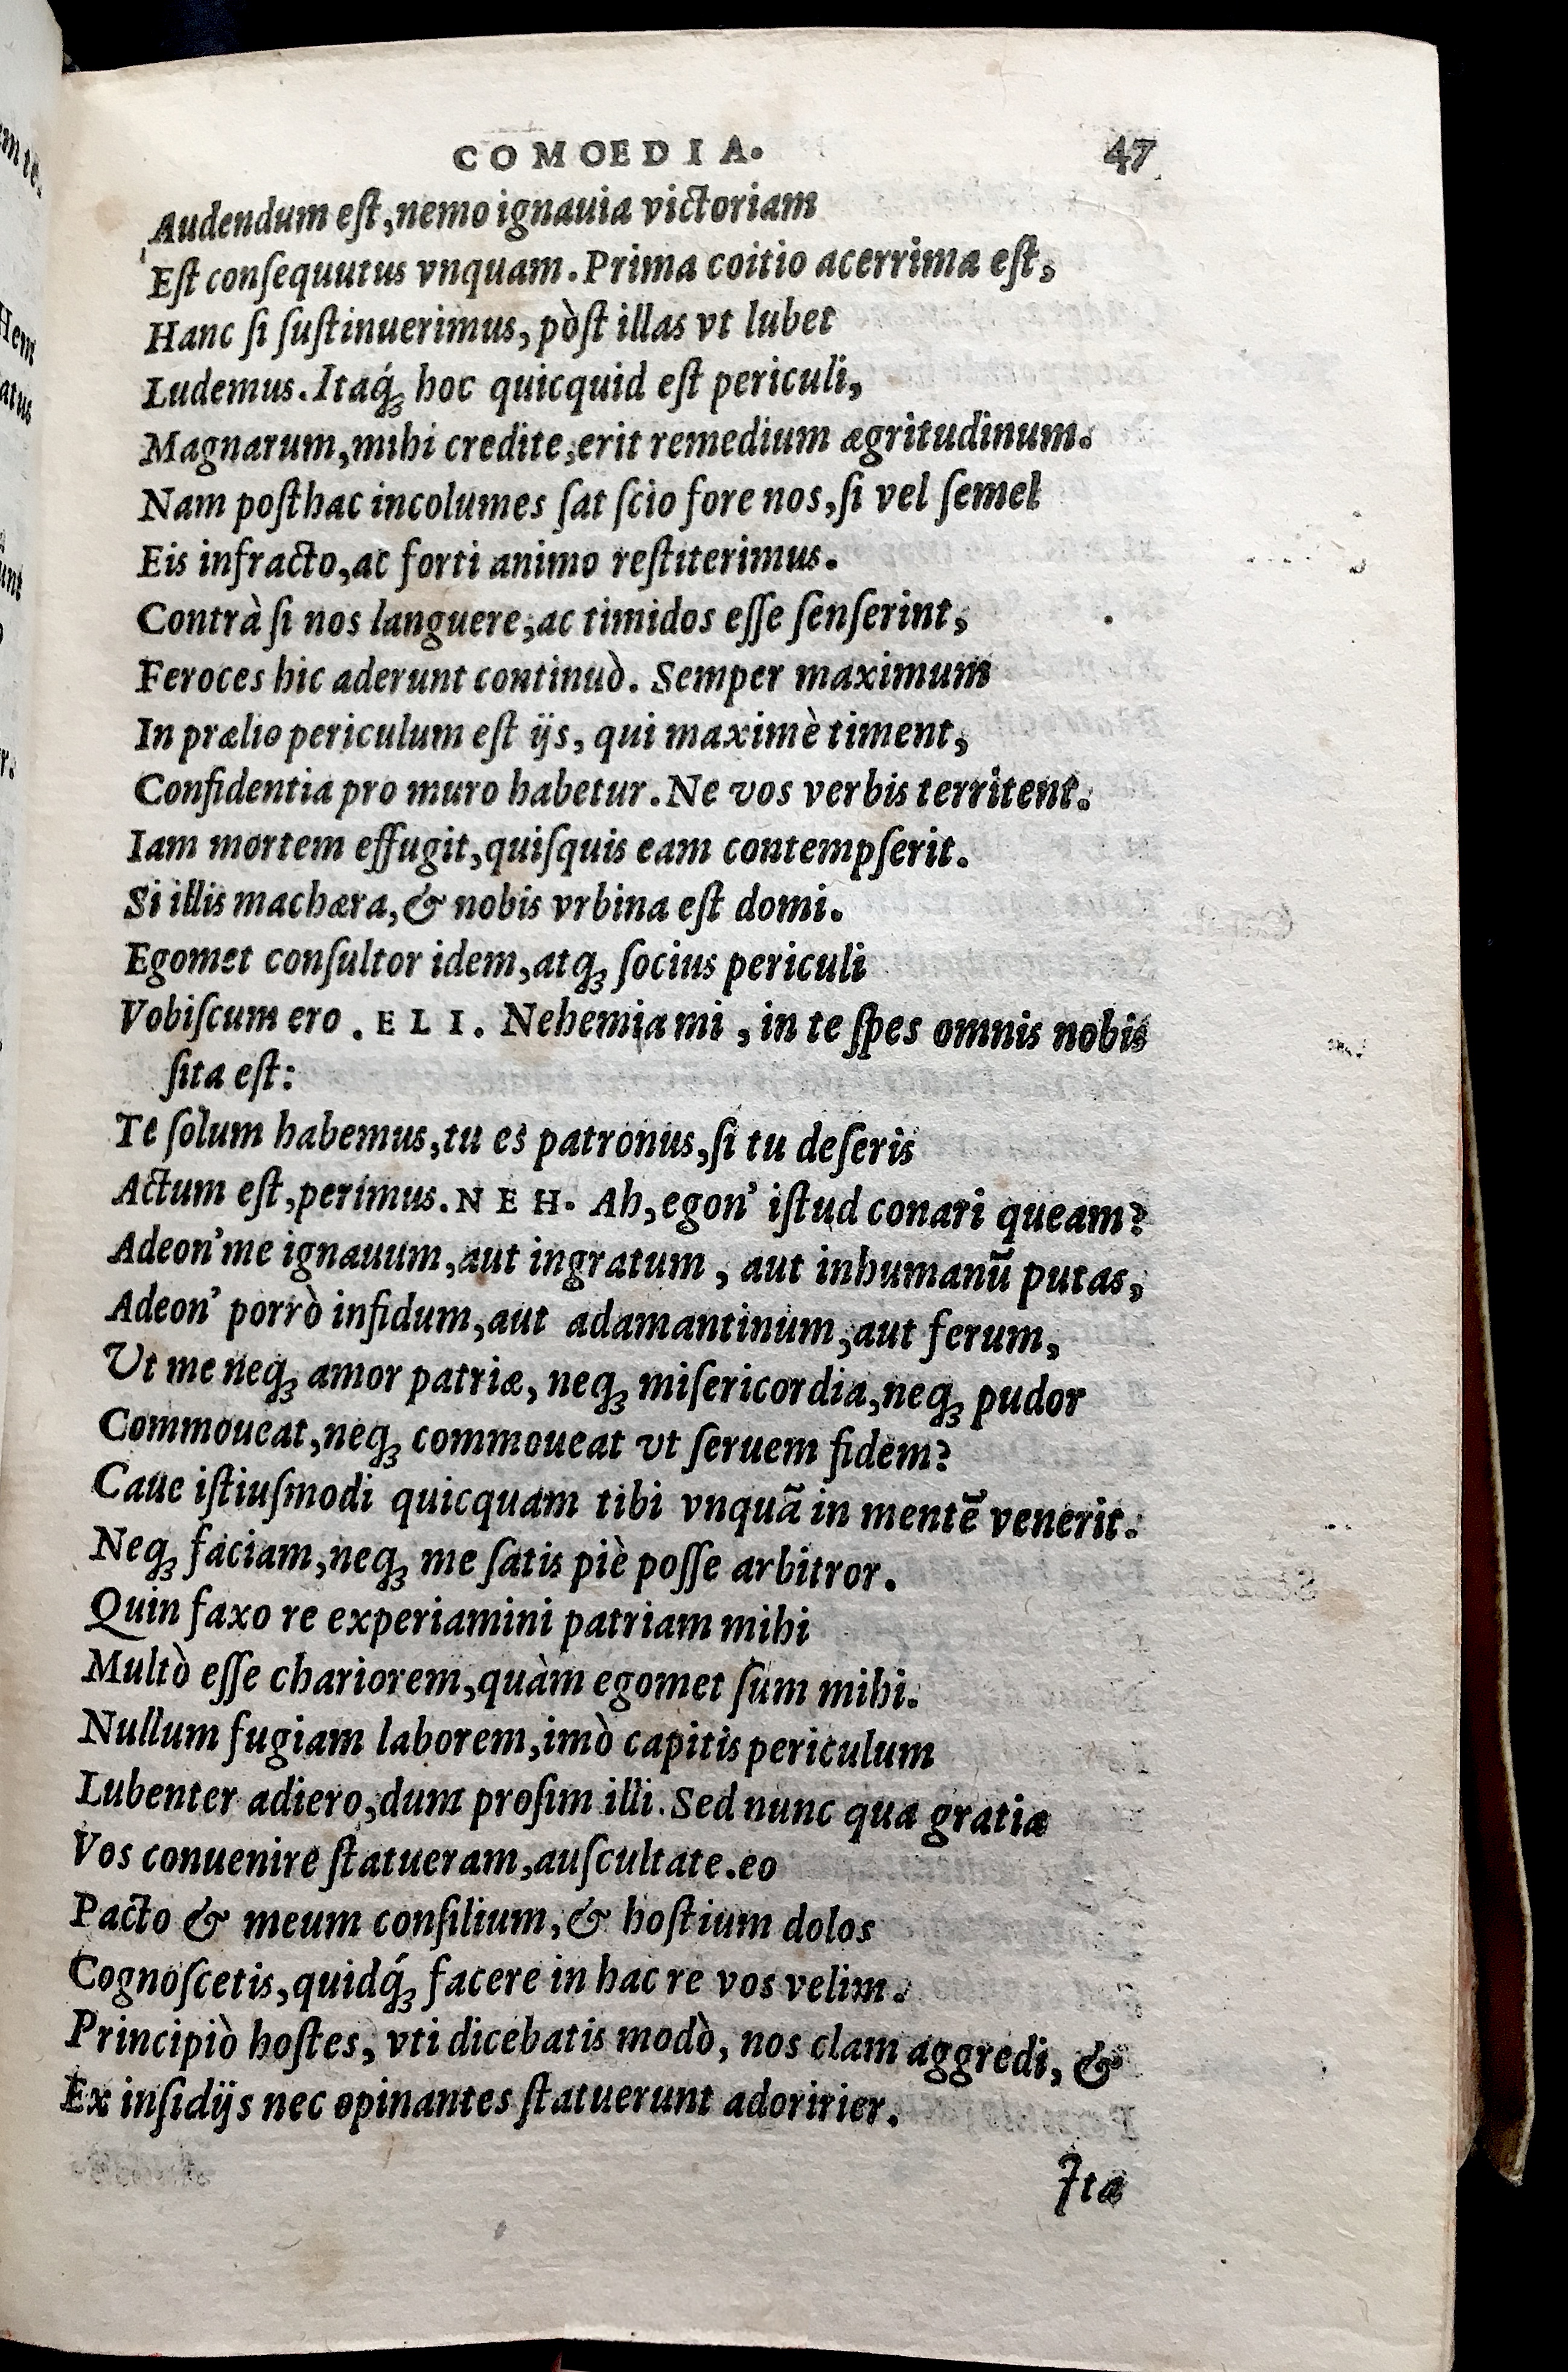 COMOEDIA. 47
Audendum eſt, nemo ignauia victoriam
Eſt conſequutus vnquam. Prima coitio acerrima eſt,
Hanc ſi ſuſtinuerimus, pòſt illas vt lubet
Ludemus. Itaq́ꝫ hoc quicquid eſt periculi,
Magnarum, mihi credite, erit remedium ægritudinum.
Nam poſthac incolumes ſat ſcio fore nos, ſi vel ſemel
Eis infracto, ac forti animo reſtiterimus.
Contrà ſi nos languere, ac timidos eſſe ſenſerint,
Feroces hic aderunt continuò. Semper maximum
In prælio periculum eſt ijs, qui maximè timent,
Confidentia pro muro habetur. Ne vos verbis territent.
Iam mortem effugit, quiſquis eam contempſerit.
Si illis machæra, & nobis vrbina eſt domi.
Egomet conſultor idem, atqꝫ ſocius periculi
Vobiſcum ero. ELI. Nehemia mi, in te ſpes omnis nobis
ſita eſt:
Te ſolum habemus, tu es patronus, ſi tu deſeris
Actum eſt, perimus. NEH. Ah, egon' iſtud conari queam?
Adeon' me ignauum, aut ingratum, aut inhumanū putas,
Adeon' porrò infidum, aut adamantinum, aut ferum,
Ut me neqꝫ amor patriæ, neqꝫ miſericordia, neqꝫ pudor
Commoueat, neqꝫ commoueat vt ſeruem fidem?
Caue iſtiuſmodi quicquam tibi vnquā in mentē venerit.
Neqꝫ faciam, neqꝫ me ſatis piè poſſe arbitror.
Quin faxo re experiamini patriam mihi
Multò eſſe chariorem, quàm egomet ſum mihi.
Nullum fugiam laborem, imò capitis periculum
Lubenter adiero, dum proſim illi. Sed nunc qua gratia
Vos conuenire ſtatueram, auſcultate. eo
Pacto & meum conſilium, & hoſtium dolos
Cognoſcetis, quidq́ꝫ facere in hac re vos velim.
Principiò hoſtes, vti dicebatis modò, nos clam aggredi, &
Ex inſidijs nec opinantes ſtatuerunt adoririer.
Ita